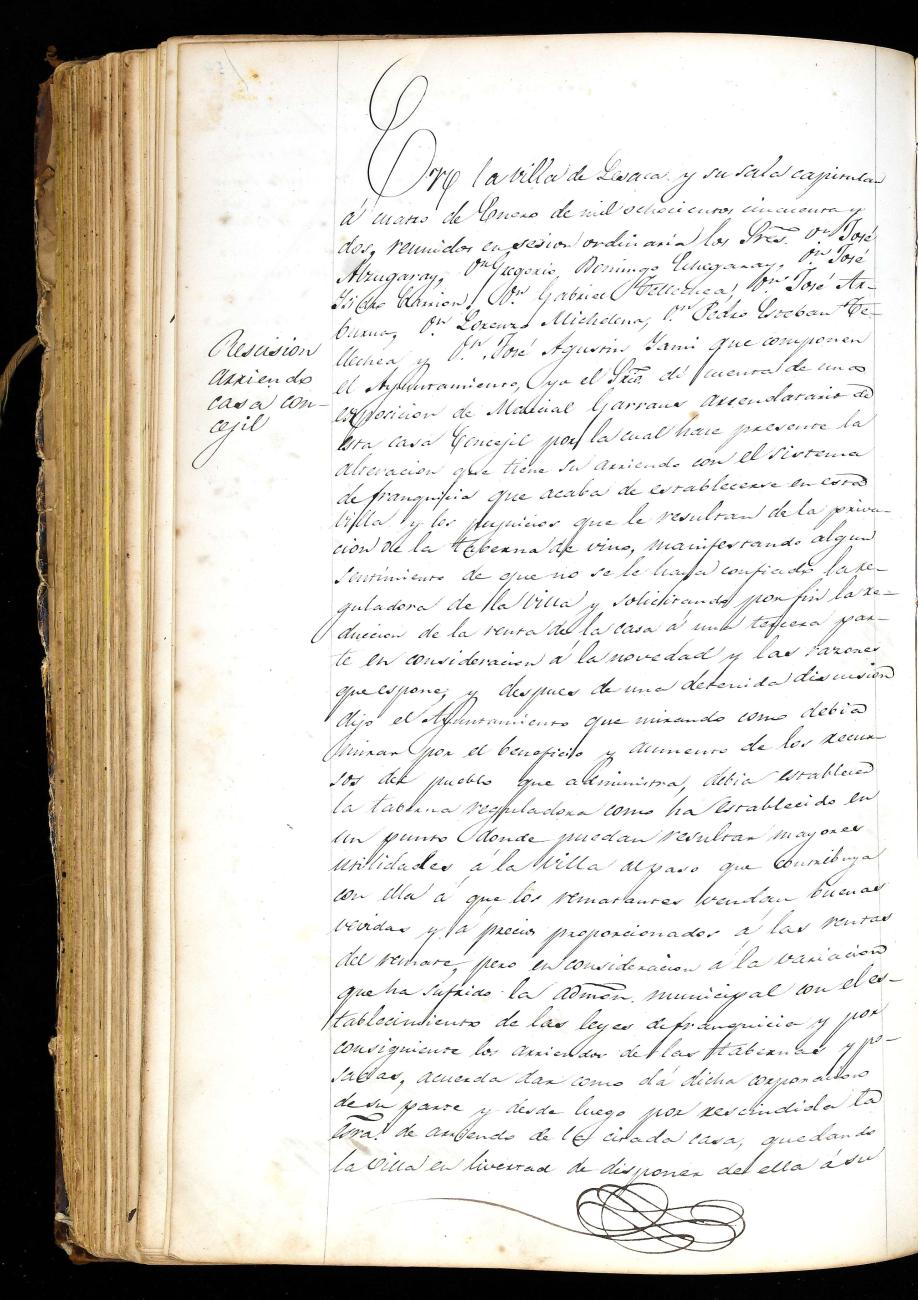 Rescision
arriendo
casa con-
cejil
En la villa de Lesaca y su sala capitular
á cuatro de Enero de mil ochocientos cincuenta y
dos, reunidos en sesion ordinaria los Sres. Dn. José
Alzugaray, Dn. Eugenio, Domingo Echegaray, Dn. José
Ysidro Carrion, Dn. Gabriel Tellechea, Dn. José Ar-
burua, Dn. Lorenzo Michelena, Dn. Pedro Esteban Te-
llechea y Dn. José Agustin Yanci que componen
el Ayuntamiento, yo el Srio. dí cuenta de una
exposicion de Marcial Garraux arrendatario de
esta casa Concejil por la cual hace presente la
alteracion que tiene su arriendo con el sistema
de franquicia que acaba de establecerse en esta
Villa y los perjuicios que le resultan de la priva-
cion de la taberna de vino, manifestando algun
sentimiento de que no se le haya confiado la re-
guladora de la Villa y solicitando por fin la re-
duccion de la renta de la casa á una tercera par-
te en consideracion á la novedad y las razones
que espone; y despues de una detenida discusion
dijo el Ayuntamiento que mirando como debia
mirar por el beneficio y aumento de los recur-
sos del pueblo que administra, debia establecer
la taberna reguladora como ha establecido en
un punto donde puedan resultar mayores
utilidades á la Villa al paso que contribuya
con ella á que los rematantes vendan buenas
vevidas y á precios proporcionados á las rentas
del remate, pero en consideracion á la variacion
que ha sufrido la admon. municipal con el es-
tablecimiento de las leyes de franquicia y por
consiguiente los arriendos de las tabernas y po-
sadas, acuerda dar como dá dicha corporacion
de su parte y desde luego por rescindida la
esra. de arriendo de la citada casa, quedando
la Villa en livertad de disponer de ella á su